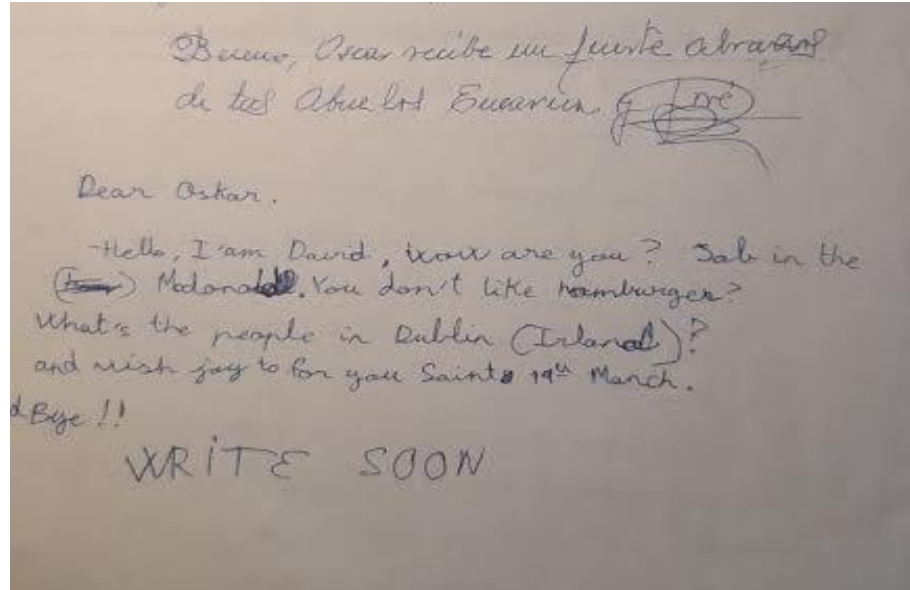 Bueno, Oscar recibe un fuerte abrazo
de tus Abuelos Encarna y José
Dear Oskar.
-Hello, I'am David, how are you? Job in the
Mcdonald. You don't like hamburger?
What's the people in Dublin (Irland)?
and wish joy to for you Saint 19th March.
d Bye !!
WRITE SOON